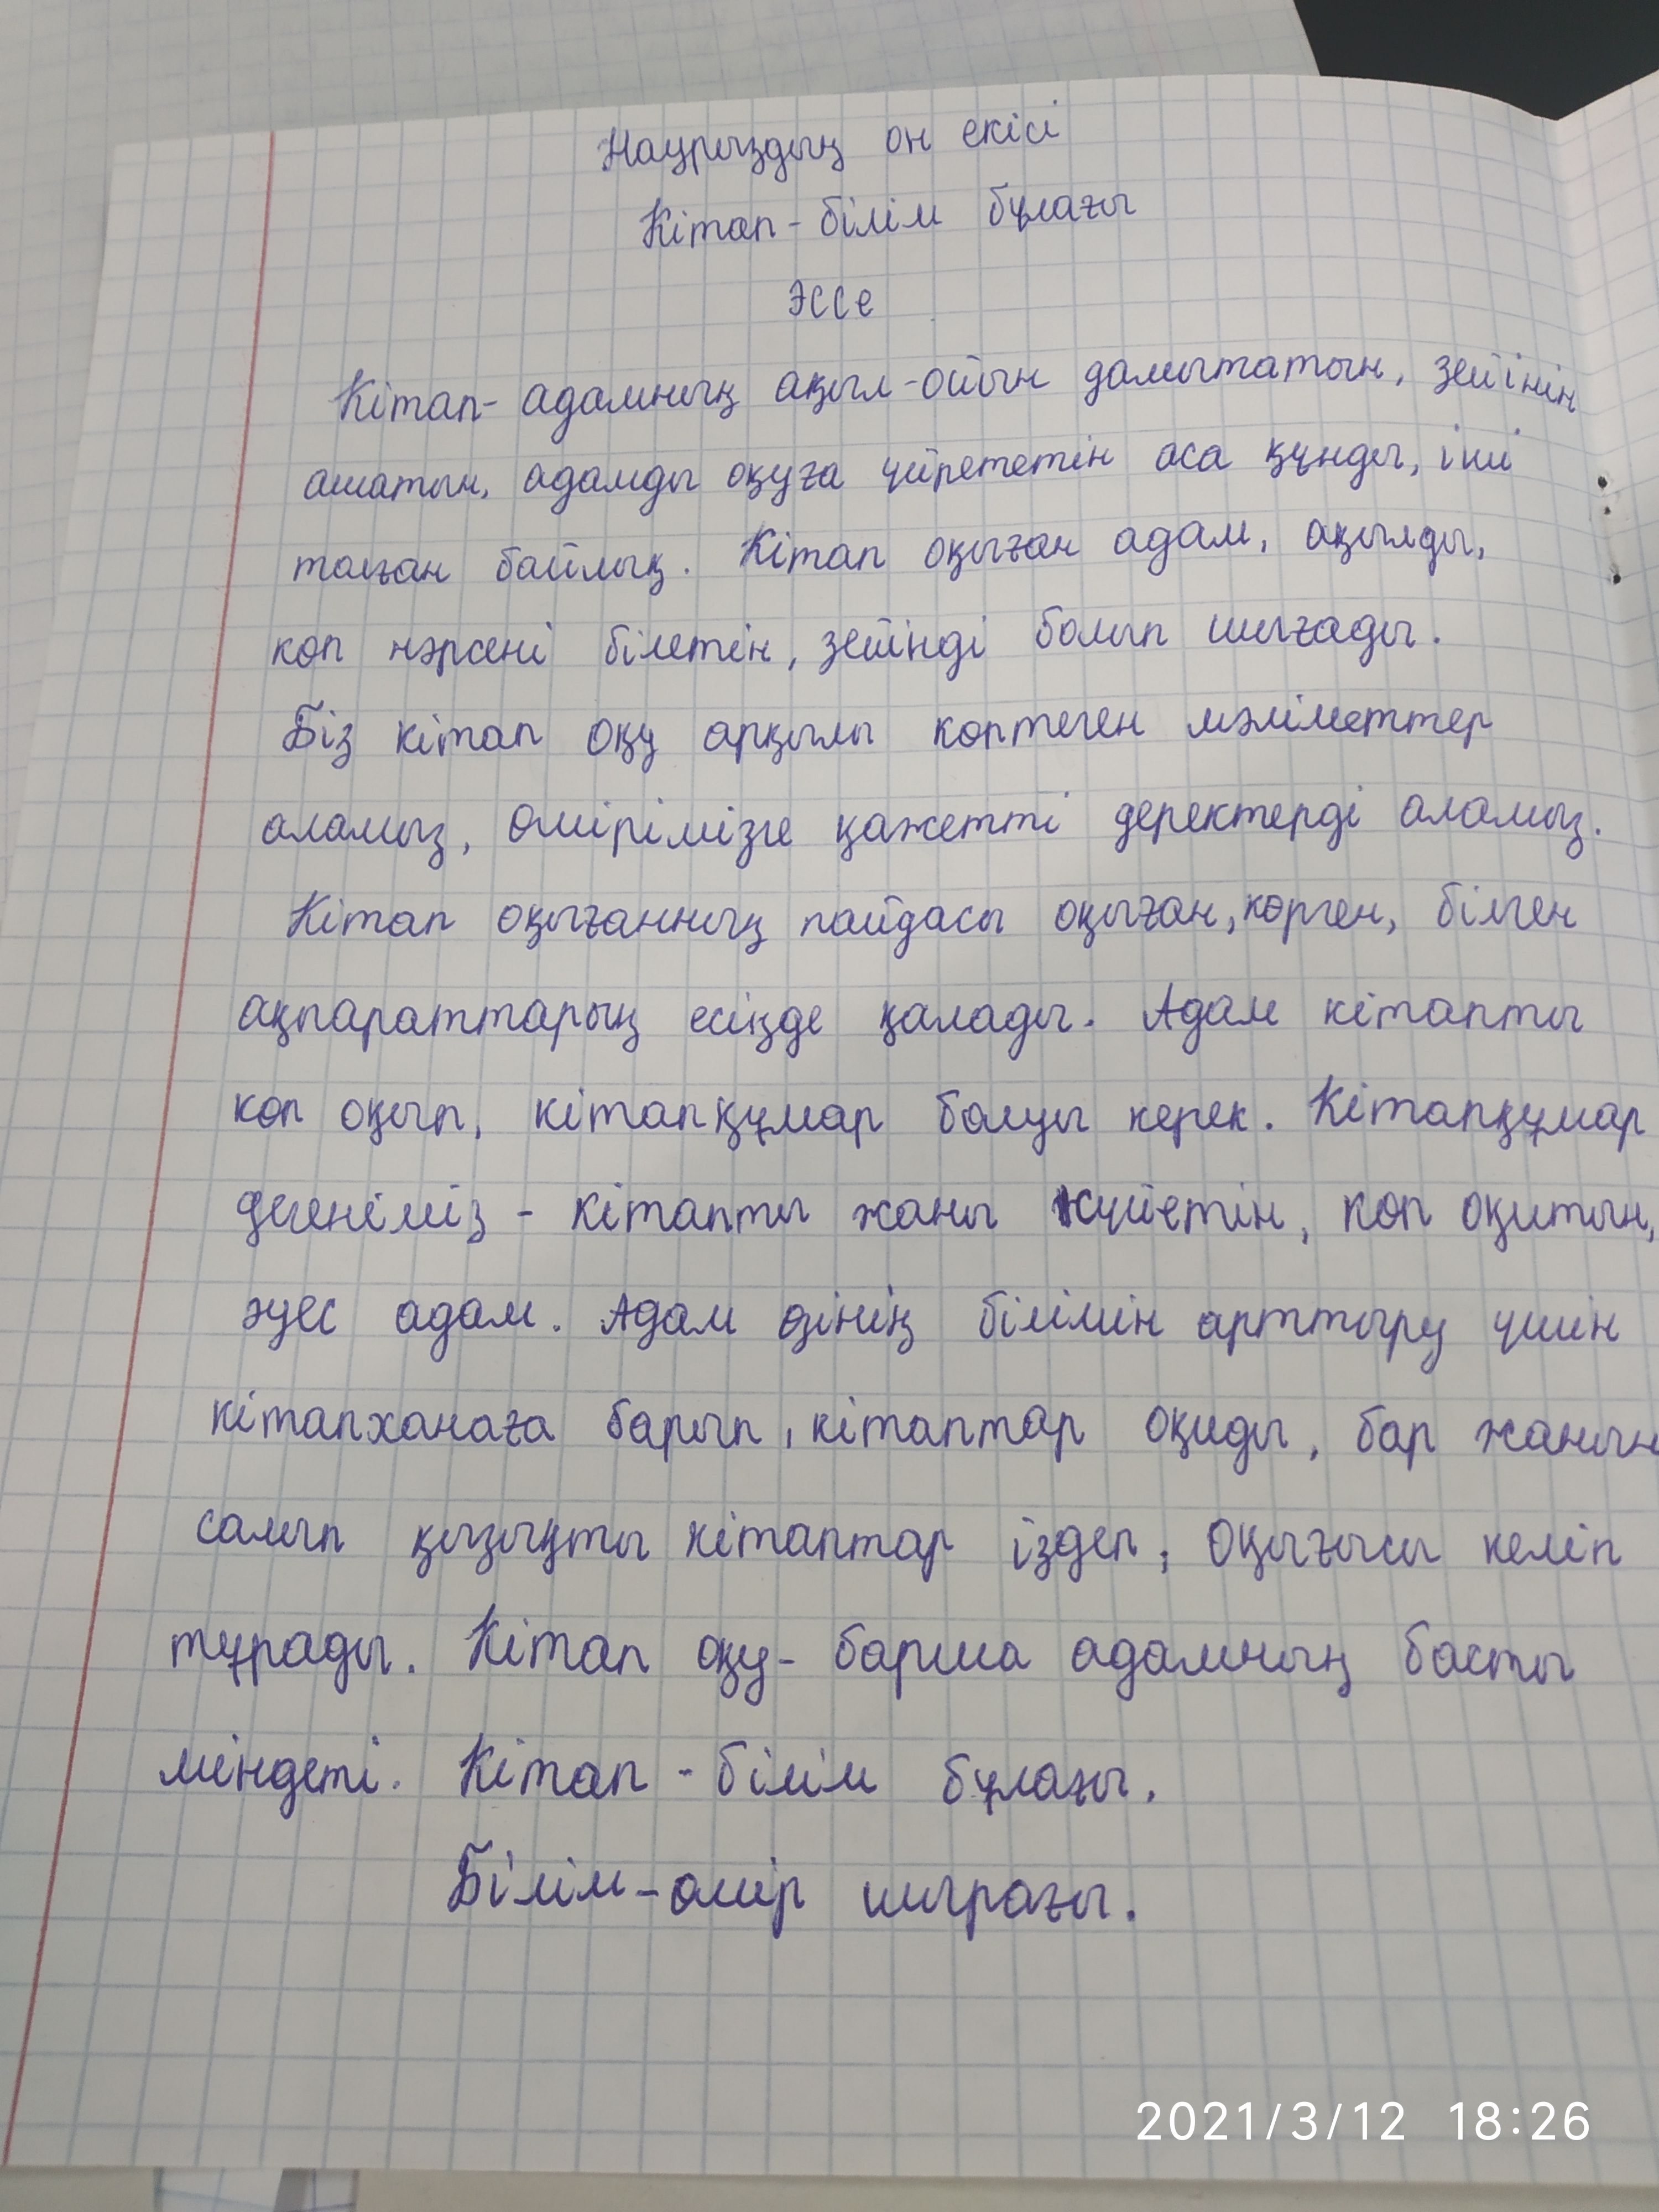 Наурыздың он екісі
Кітап - білім бұлағы
Эссе
Кітап - адамның ақыл-ойын дамытатын, зейінін
ашатын, адамды оқуға үйрететін аса құнды, іші
толған байлық. Кітап оқыған адам, ақылды,
көп нәрсені білетін, зейінді болып шығады.
Біз кітап оқу арқылы көптеген мәліметтер
аламыз, өмірімізге қажетті деректерді аламыз.
Кітап оқығанның пайдасы оқыған, көрген, білген
ақпараттарың есіңде қалады. Адам кітапты
көп оқып, кітапқұмар болуы керек. Кітапқұмар
дегеніміз - кітапты жаны сүйетін, көп оқитын,
әуес адам. Адам өзінің білімін арттыру үшін
кітапханаға барып, кітаптар оқиды, бар жанын
салып қызықты кітаптар іздеп, оқығысы келіп
тұрады. Кітап оқу - барша адамның басты
міндеті. Кітап - білім бұлағы.
Білім - өмір шырағы.
2021/3/12 18:26